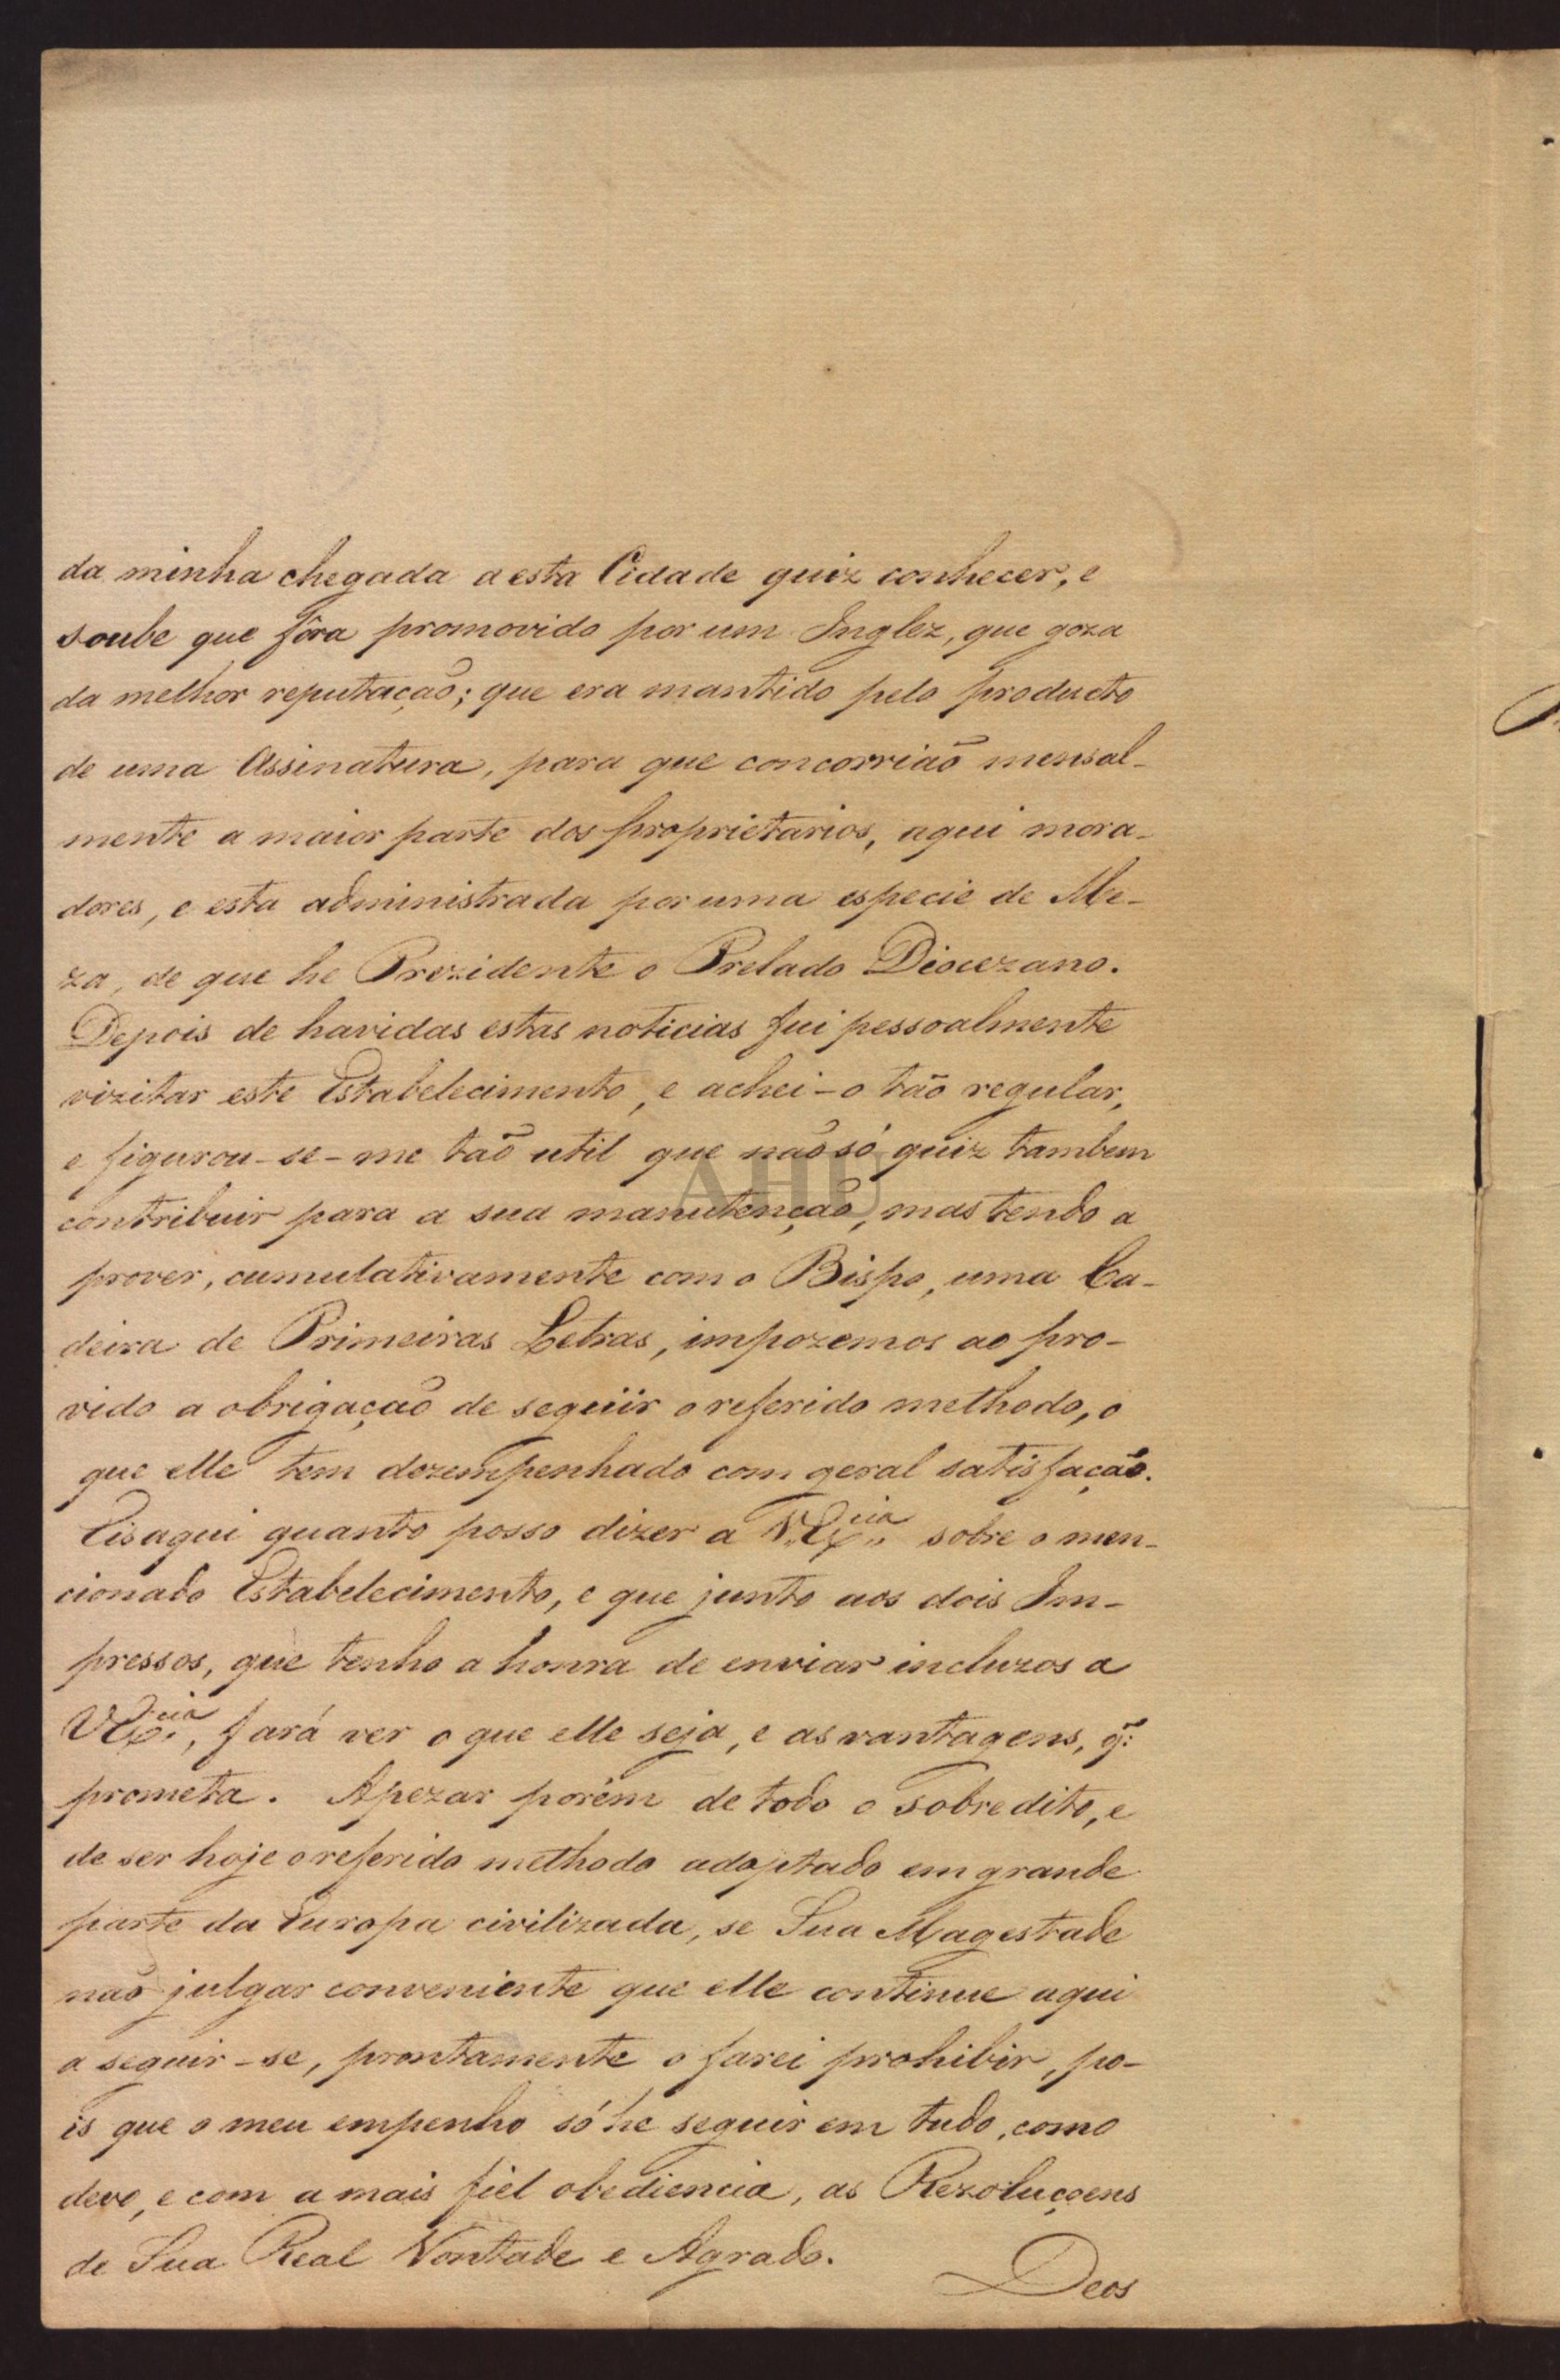 da minha chegada a esta Cidade quiz conhecer, e
soube que fôra promovido por um Inglez, que goza
da melhor reputação; que era mantido pelo producto
de uma Assinatura, para que concorrião mensal-
mente a maior parte dos proprietarios, aqui mora-
dores, e esta administrada por uma especie de Me-
za, de que he Prezidente o Prelado Diocezano.
Depois de havidas estas noticias fui pessoalmente
vizitar este Estabelecimento, e achei-o tão regular,
e figurou-se-me tão util que não só quiz tambem
contribuir para a sua manutenção, mas tendo a
prover, cumulativamente com o Bispo, uma Ca-
deira de Primeiras Letras, impozemos ao pro-
vido a obrigação de seguiir o referido methodo, o
que elle tem dezempenhado com geral satisfação.
Eis aqui quanto posso dizer a V. Ex.cia sobre o men-
cionado Estabelecimento, e que junto aos dois Im-
pressos, que tenho a honra de enviar incluzos a
V Ex.cia, fará ver o que elle seja, e as vantagens, q̃:
prometa. Apezar porém de todo o sobredito, e
de ser hoje o referido methodo adoptado em grande
parte da Europa civilizada, se Sua Magestade
não julgar conveniente que elle continue aqui
a seguir-se, prontamente o farei prohibir, po-
is que o meu empenho só he seguir em tudo, como
devo, e com a mais fiel obediencia, as Rezoluçoens
de Sua Real Vontade e Agrado.
Deos
AHU